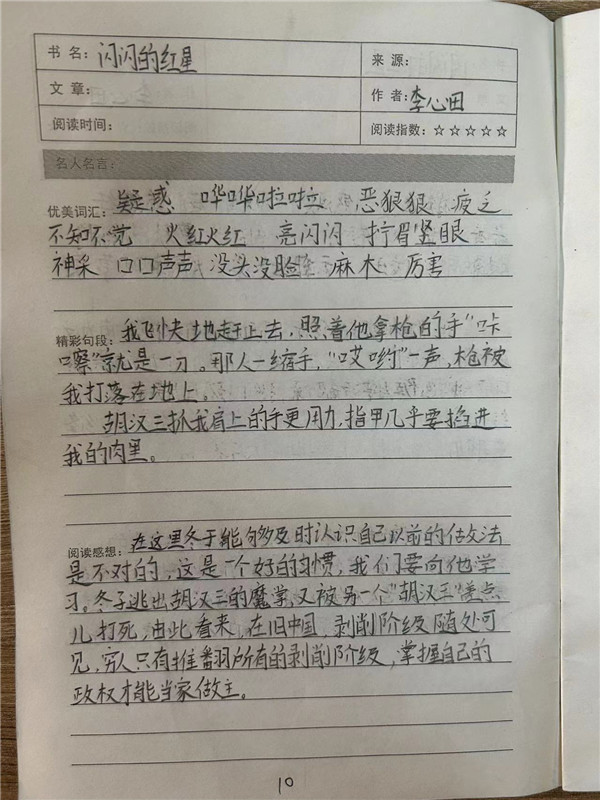 书 名：闪闪的红星 来 源：
文 章： 作 者：李心田
阅读时间： 阅读指数：☆☆☆☆☆
名人名言：
优美词汇：疑惑 哗哗啦啦 恶狠狠 疲乏
不知不觉 火红火红 亮闪闪 拧眉竖眼
神采 口口声声 没头没脸 麻木 厉害
精彩句段：我飞快地赶上去，照着他拿枪的手“咔
嚓”就是一刀。那人一缩手，“哎哟”一声，枪被
我打落在地上。
胡汉三抓我肩上的手更用力，指甲几乎要掐进
我的肉里。
阅读感想：在这里冬子能够及时认识自己以前的做法
是不对的，这是一个好的习惯，我们要向他学
习。冬子逃出胡汉三的魔掌，又被另一个“胡汉三”差点
儿打死，由此看来，在旧中国，剥削阶级随处可
见，穷人只有推翻所有的剥削阶级，掌握自己的
政权才能当家做主。
10